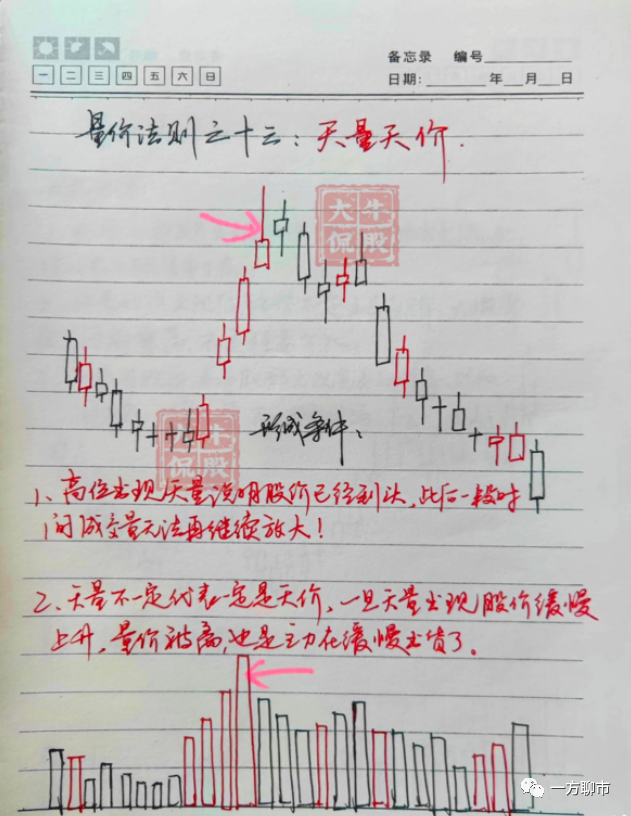 备忘录 编号
一 二 三 四 五 六 日
日期: 年 月 日
量价法则之十三：天量天价.
大牛
侃股
大牛
侃股
形成条件：
1、高位出现天量说明股价已经到头，此后一段时
间成交量无法再继续放大！
2、天量不一定代表一定是天价，一旦天量出现股价缓慢
上升，量价背离，也是主力在缓慢出货了。
一方聊市